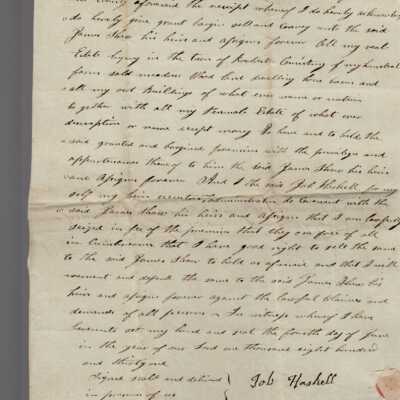 the receipt whereof I do hereby acknowledge
do hereby give grant bargin sell and convey unto the said
James Shaw his heirs and assigns forever All my real
Estate lying in the town of consisting of my homestead
farm dwelling house barn and
all my out Buildings of what ever name or nature
to gether with all my Estate of what ever
discription or name except money To have and to hold the
said granted and bargined premises with the privileges and
appurtenances thereof to him the said James Shaw his heirs
and Assigns forever And I the said Job Haskell for my
self my heirs executors administrators do Covenant with the
said James Shaw his heirs and Assigns that I am lawfully
seized in fee of the premises that they are free of all
incumbrances that I have good right to sell the same
to the said James Shaw to hold as aforesaid and that I will
warrent and defend the same to the said James Shaw his
heirs and assigns forever against the lawful claimes and
demands of all persons In witness whereof I have
hereunto set my hand and seal the fourth day of June
in the year of our Lord one thousand eight hundred
and thirty
Signed seald and delivered
in presence of us
Job Haskell